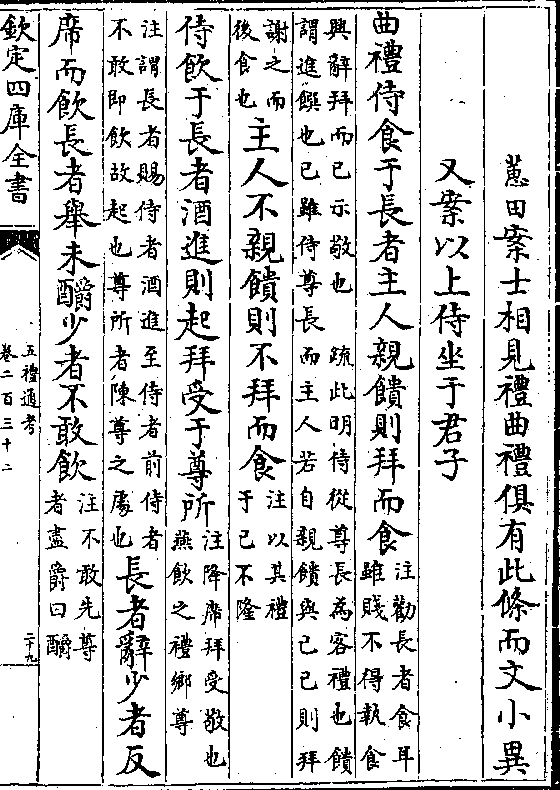 蕙田案士相見禮曲禮俱有此條而文小異
又案以上侍坐于君子
曲禮侍食于長者主人親饋則拜而食
注勸長者食耳
雖賤不得執食
興辭拜而已示敬也 疏此明侍從尊長為客禮也饋
謂進饌也已雖侍尊長而主人若自親饋與已已則拜
謝之而
後食也
主人不親饋則不拜而食
注以其禮
于已不隆
侍飲于長者酒進則起拜受于尊所
注降席拜受敬也
燕飲之禮鄉尊
注謂長者賜侍者酒進至侍者前侍者
不敢即飲故起也尊所者陳尊之處也
長者辭少者反
席而飲長者舉未釂少者不敢飲
注不敢先尊
者盡爵曰釂
欽定四庫全書
五禮通考
卷二百三十二
二十九